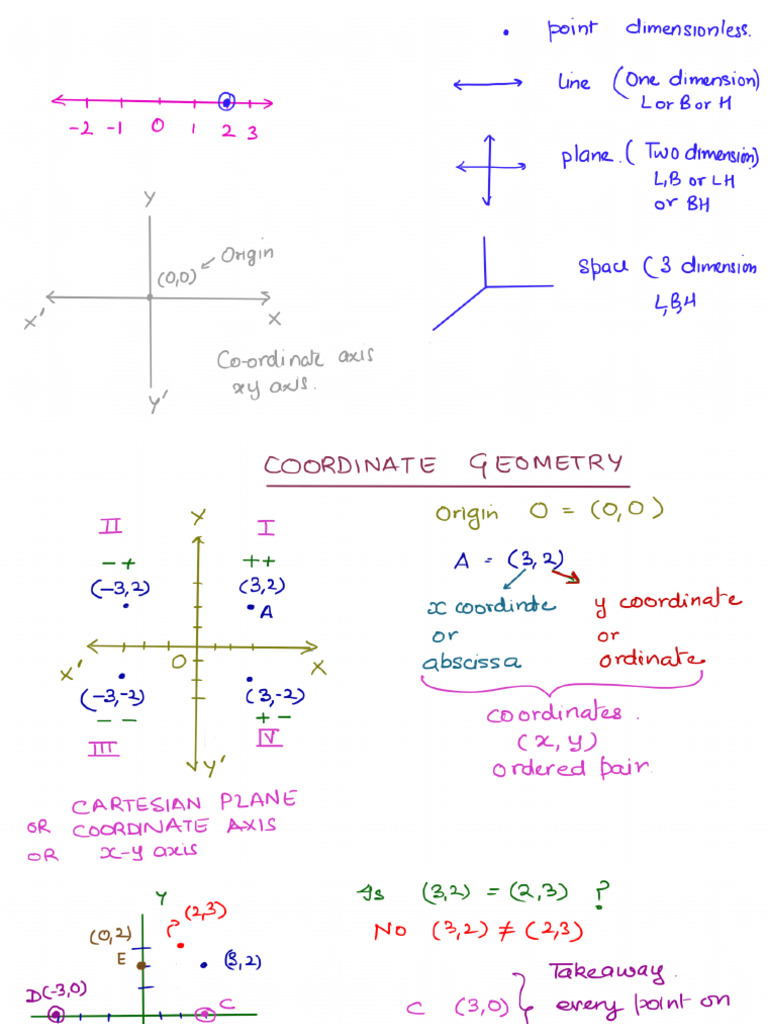 point dimensionless.
line (One dimension)
L or B or H
-2 -1 0 1 2 3
plane. (Two dimension)
L,B or LH
or BH
Y
Origin
(0,0)
X' X
Space (3 dimension
L,B,H
Co-ordinate axis
xy axis.
Y'
COORDINATE GEOMETRY
Origin O = (0,0)
Y
II I
- + + +
(-3,2) (3,2)
A
A = (3,2)
x coordinate y coordinate
or or
abscissa ordinate
X' O X
(-3,-2) (3,-2)
- - + -
III IV
Y'
coordinates.
(x, y)
ordered pair.
CARTESIAN PLANE
OR COORDINATE AXIS
OR x-y axis
Is (3,2) = (2,3) ?
No (3,2) ≠ (2,3)
Y
(2,3)
(0,2)
E
(3,2)
D(-3,0)
C
Takeaway.
C (3,0) every point on